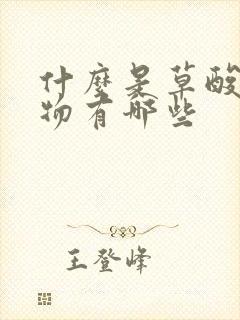 什麼是草酸
物有哪些
王登峰